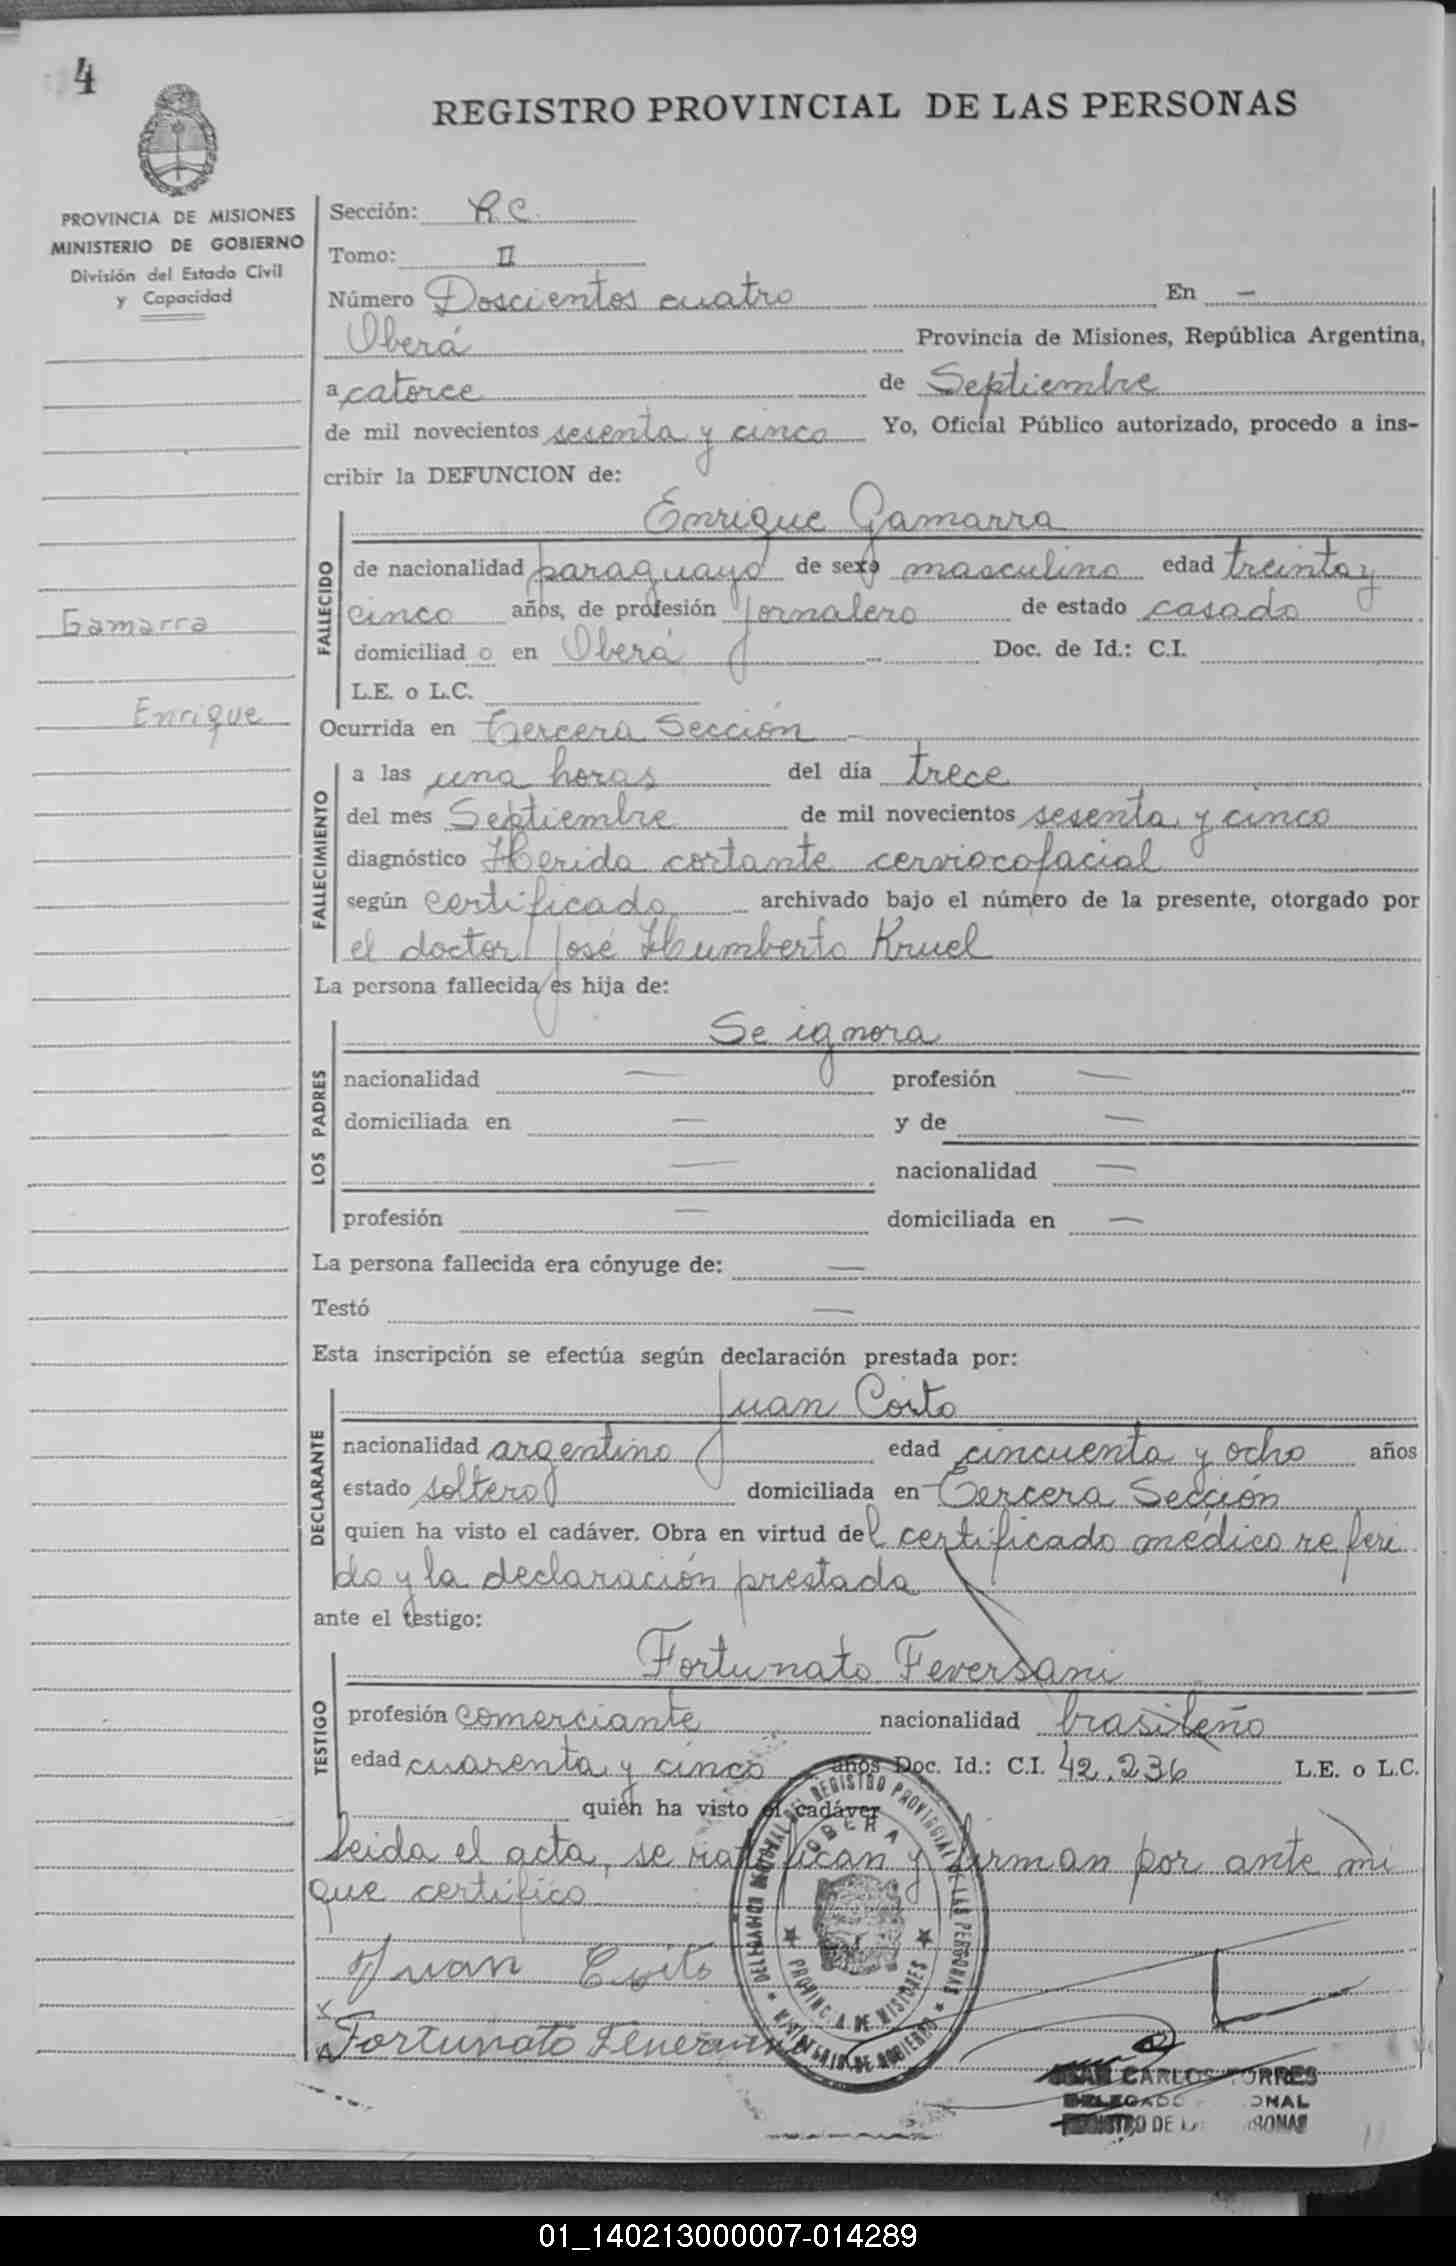 4
REGISTRO PROVINCIAL DE LAS PERSONAS
PROVINCIA DE MISIONES
MINISTERIO DE GOBIERNO
División del Estado Civil
y Capacidad
Gamarra
Enrique
Sección: R.C.
Tomo: II
Número Doscientos cuatro En —
Oberá Provincia de Misiones, República Argentina,
a catorce de Septiembre
de mil novecientos sesenta y cinco Yo, Oficial Público autorizado, procedo a ins-
cribir la DEFUNCION de:
FALLECIDO
Enrique Gamarra
de nacionalidad paraguayo de sexo masculino edad treinta y
cinco años, de profesión Jornalero de estado casado
domiciliad o en Oberá Doc. de Id.: C.I.
L.E. o L.C.
Ocurrida en Tercera Sección
FALLECIMIENTO
a las una horas del día trece
del mes Septiembre de mil novecientos sesenta y cinco
diagnóstico Herida cortante cerviocofacial
según certificado archivado bajo el número de la presente, otorgado por
el doctor José Humberto Kruel
La persona fallecida es hija de:
LOS PADRES
Se ignora
nacionalidad — profesión —
domiciliada en — y de —
— nacionalidad —
profesión — domiciliada en —
La persona fallecida era cónyuge de: —
Testó —
Esta inscripción se efectúa según declaración prestada por:
DECLARANTE
Juan Coito
nacionalidad argentino edad cincuenta y ocho años
estado soltero domiciliada en Tercera Sección
quien ha visto el cadáver. Obra en virtud del certificado médico referi
do y la declaración prestada
ante el testigo:
TESTIGO
Fortunato Feversani
profesión comerciante nacionalidad brasileño
edad cuarenta y cinco años Doc. Id.: C.I. 42.236 L.E. o L.C.
quien ha visto el cadáver
Leida el acta, se ratifican y firman por ante mi
que certifico
Juan Coito
Fortunato
DEL REGISTRO PROVINCIAL DE LAS PERSONAS
OBERA
PROVINCIA DE MISIONES
MINISTERIO DE GOBIERNO
JUAN CARLOS TORRES
01_140213000007-014289